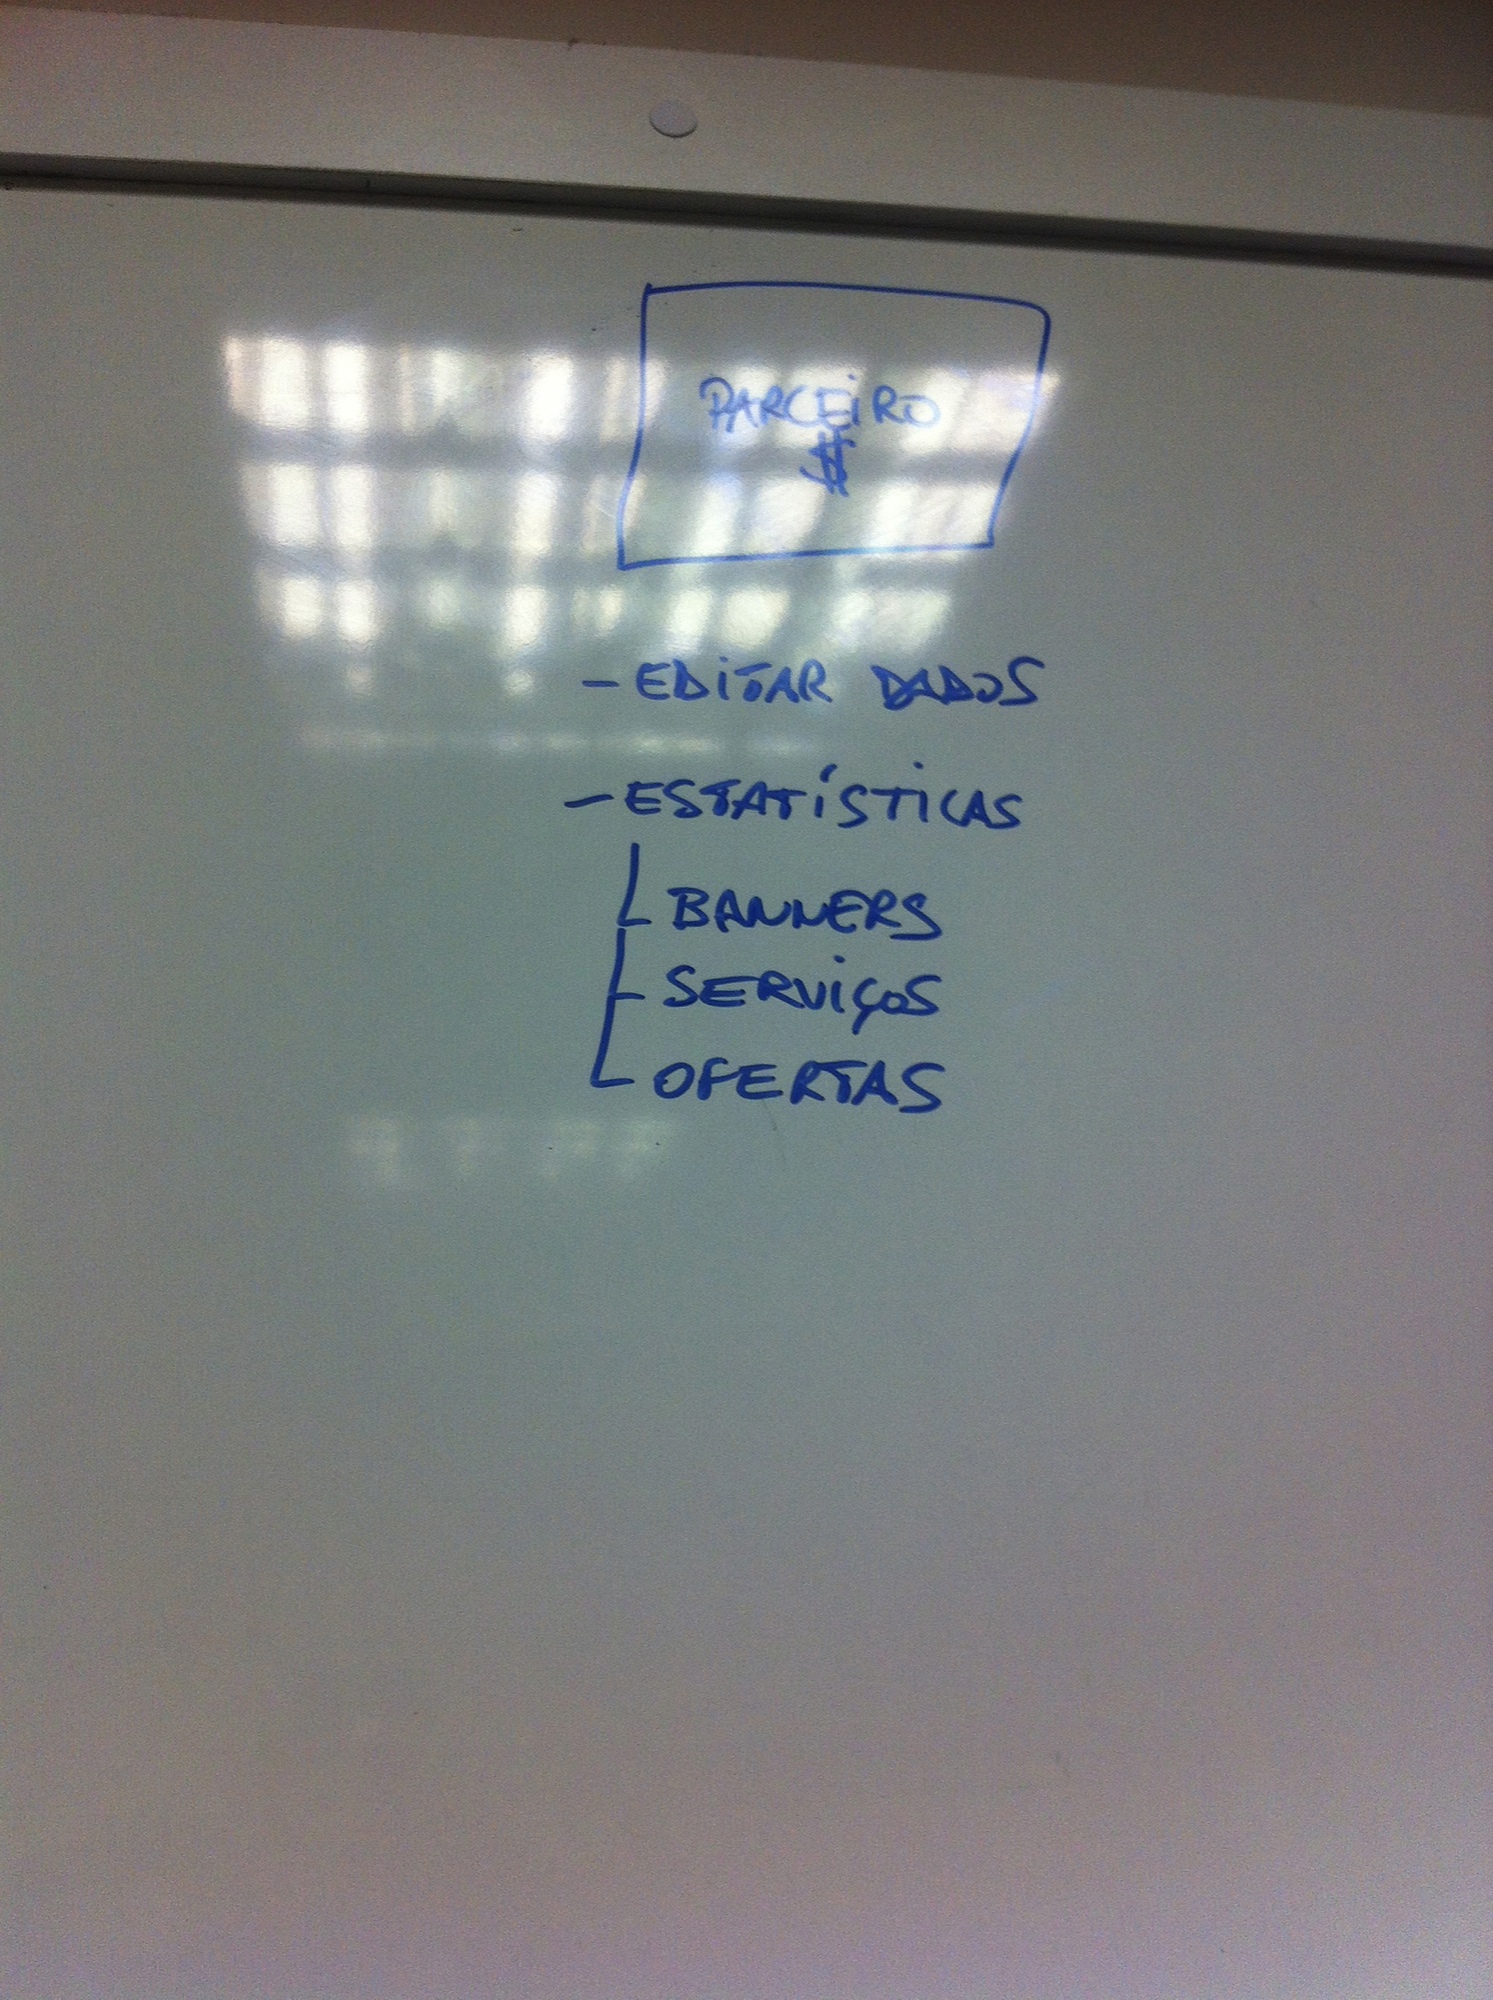 PARCEIRO
$
- EDITAR DADOS
- ESTATÍSTICAS
BANNERS
SERVIÇOS
OFERTAS